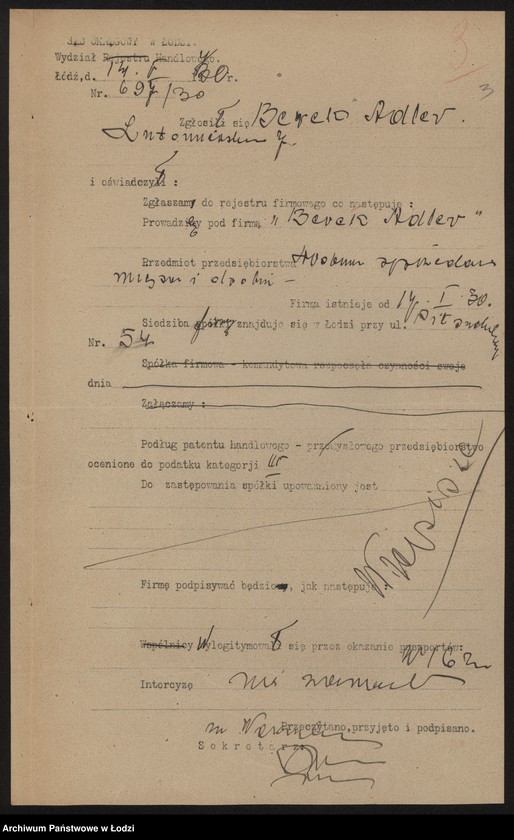 SĄD OKRĘGOWY W ŁODZI.
Wydział Rejestru Handlowego.
Łódź, d. 14. I 30 r.
Nr. 697/30
3
3
Zgłosił się Berek Adler.
Lutomierska 7
i oświadczył :
Zgłaszam do rejestru firmowego co następuje :
Prowadzę pod firmą „Berek Adler"
Przedmiot przedsiębiorstwa sprzedaż
mięsa i drobiu –
Firma istnieje od 14. I. 30.
Siedziba firmy znajduje się w Łodzi przy ul.
Nr. 54
Spółka firmowa - komandytowa rozpoczęła czynności swoje
dnia
Załączamy :
Podług patentu handlowego - przemysłowego przedsiębiorstwo
ocenione do podatku kategorji III
Do zastępowania spółki upoważniony jest
Firmę podpisywać będzie, jak następuje
Wspólnicy Wylegitymował się przez okazanie paszportów:
Intercyzę nie zawierał
Przeczytano, przyjęto i podpisano.
Sekretarz
Archiwum Państwowe w Łodzi